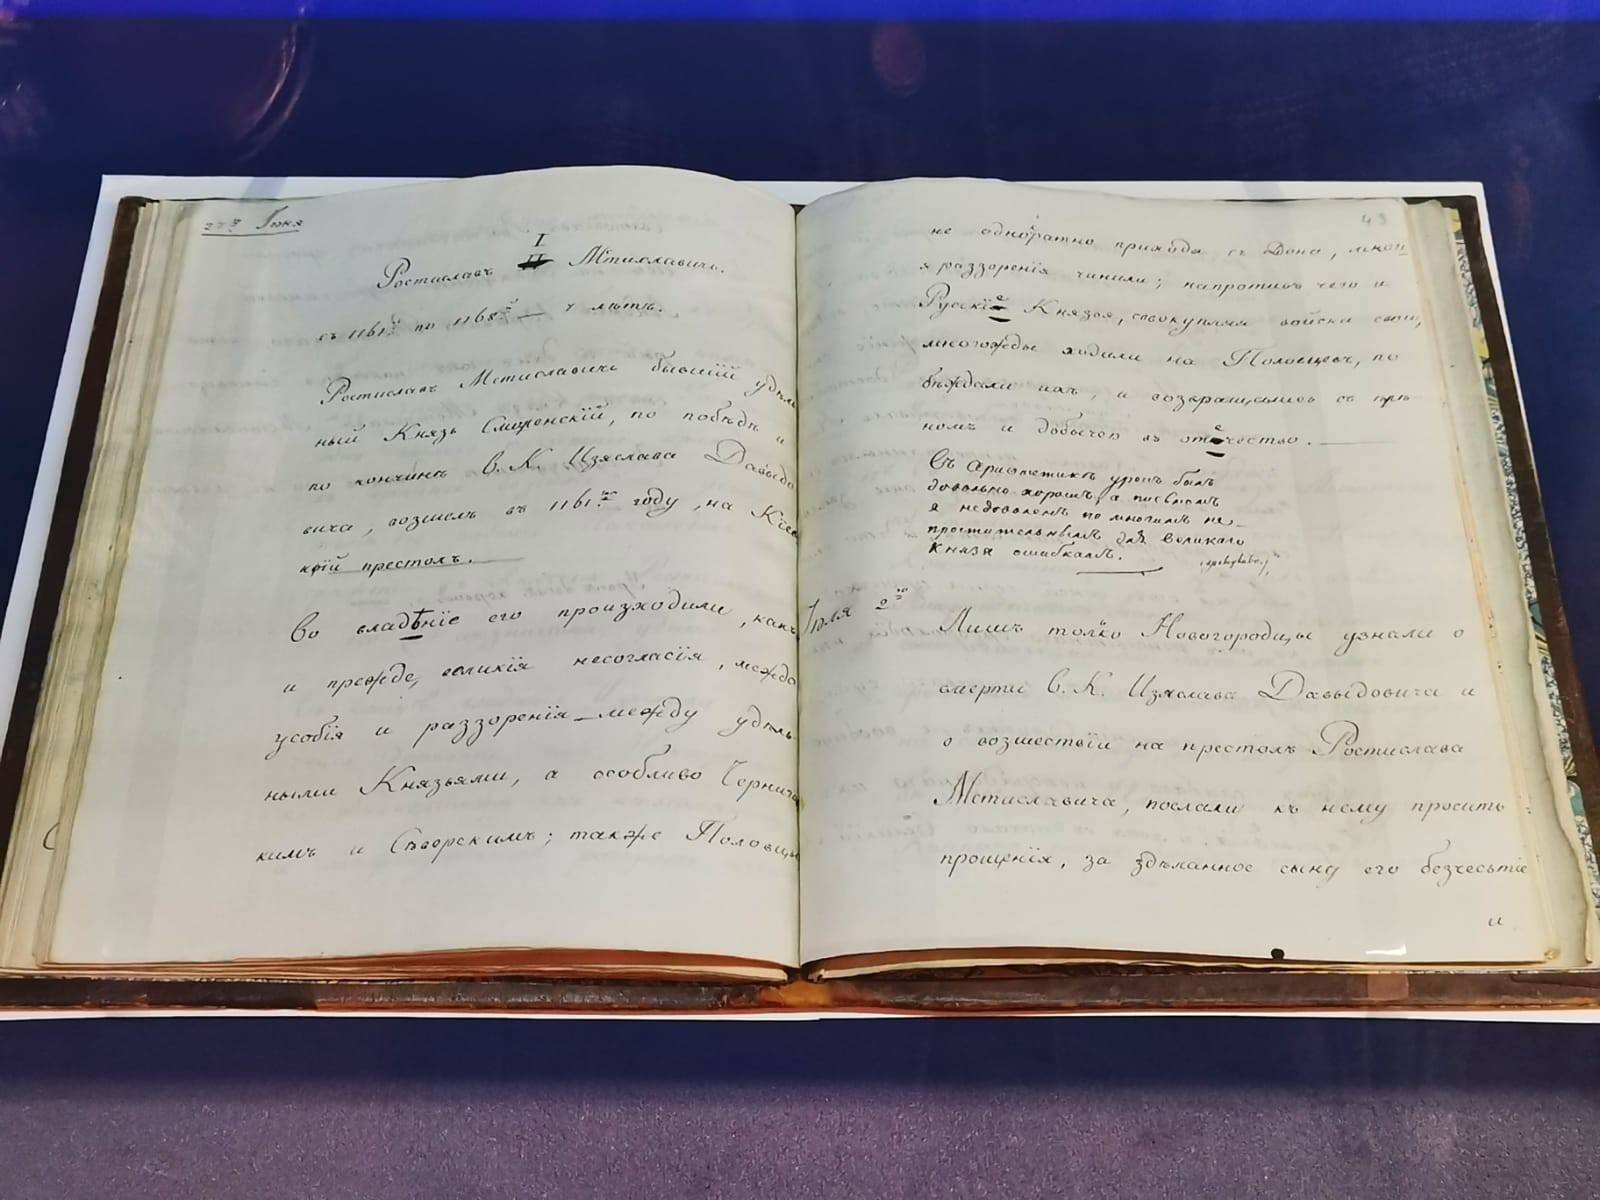 27го Іюня
I
Ростиславъ II Мстиславичь.
съ 1161го по 1168й — 7 лѣтъ.
Ростиславъ Мстиславичь бывшій удѣль
ный Князь Смоленскій, по побѣдѣ и
по кончинѣ В. К. Изяслава Давыдо
вича, возшелъ въ 1161мъ году, на Кіев
скій престолъ.
Во владѣніе его произходили, какъ
и прежде, великія несогласія, междо
усобія и раззоренія между удѣль
ными Князьями, а особливо Чернигов
кимъ и Сѣверскимъ; также Половцы
49
не однократно приходя съ Дона, мног
я раззоренія чинили; напротивъ чего и
Рускіе Князья, совокупляя войски свои,
многожды ходили на Половцевъ, по
бѣждали ихъ, и возвращались съ плѣ
номъ и добычею въ отечество.
Въ Ариѳметикѣ урокъ былъ
довольно хорошъ, а письмомъ
я недоволенъ по многимъ не-
простительнымъ для великаго
Князя ошибкамъ.
Іюля 2го
Лишь только Новогородцы узнали о
смерти В. К. Изяслава Давыдовича и
о возшествіи на престолъ Ростислава
Мстиславича, послали къ нему просить
прощенія, за здѣланное сыну его безчестіе
и